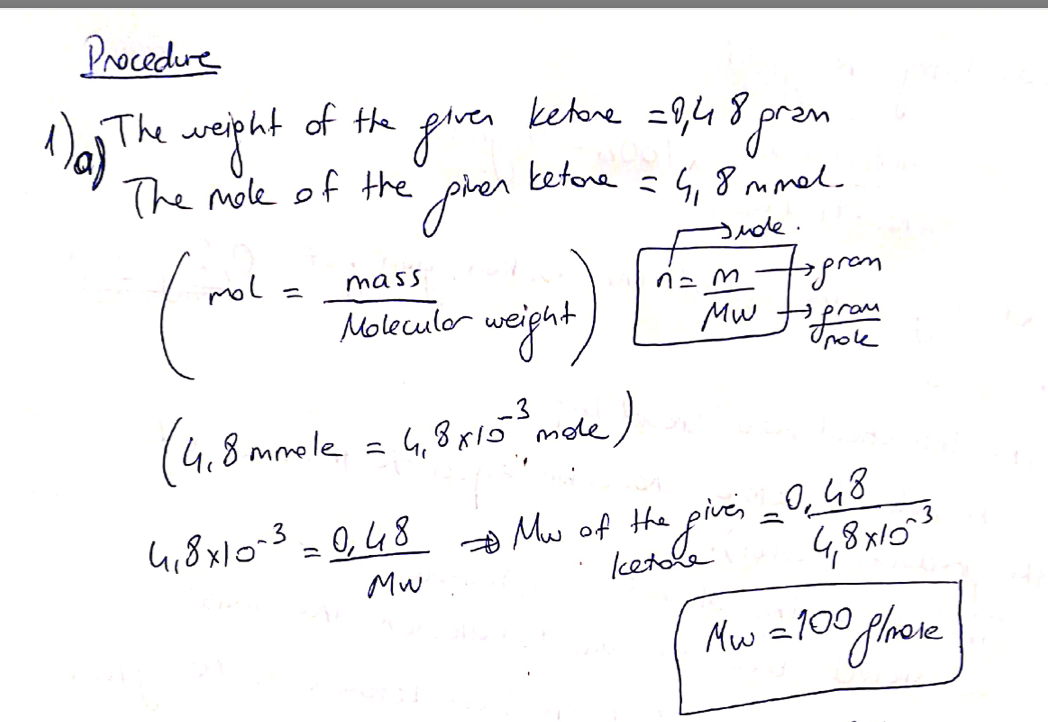 Procedure
1) a) The weight of the given ketone = 0,48 gram
The mole of the given ketone = 4,8 mmol.
( mol = mass / Molecular weight ) n = m / MW → mole. → gram → gram / mole
(4,8 mmole = 4,8x10⁻³ mole)
4,8x10⁻³ = 0,48 / MW ⇒ Mw of the given ketone = 0,48 / 4,8x10⁻³
Mw = 100 g/mole